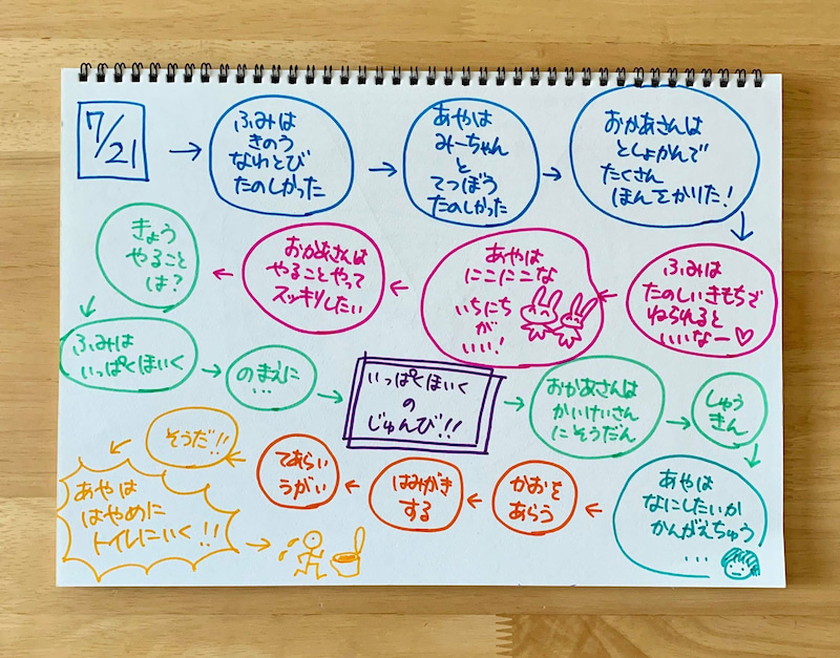 7/21
ふみは
きのう
なわとび
たのしかった
あやは
みーちゃん
と
てつぼう
たのしかった
おかあさんは
としょかんで
たくさん
ほんをかりた!
ふみは
たのしいきもちで
ねられると
いいなー♡
あやは
にこにこな
いちにち
が
いい!
おかあさんは
やることやって
スッキリしたい
きょう
やること
は?
ふみは
いっぱくほいく
のまえに
...
いっぱくほいく
の
じゅんび!!
おかあさんは
かいけいさん
にそうだん
しゅう
きん
あやは
なにしたいか
かんがえちゅう
...
かおを
あらう
はみがき
する
てあらい
うがい
そうだ!!
あやは
はやめに
トイレにいく!!